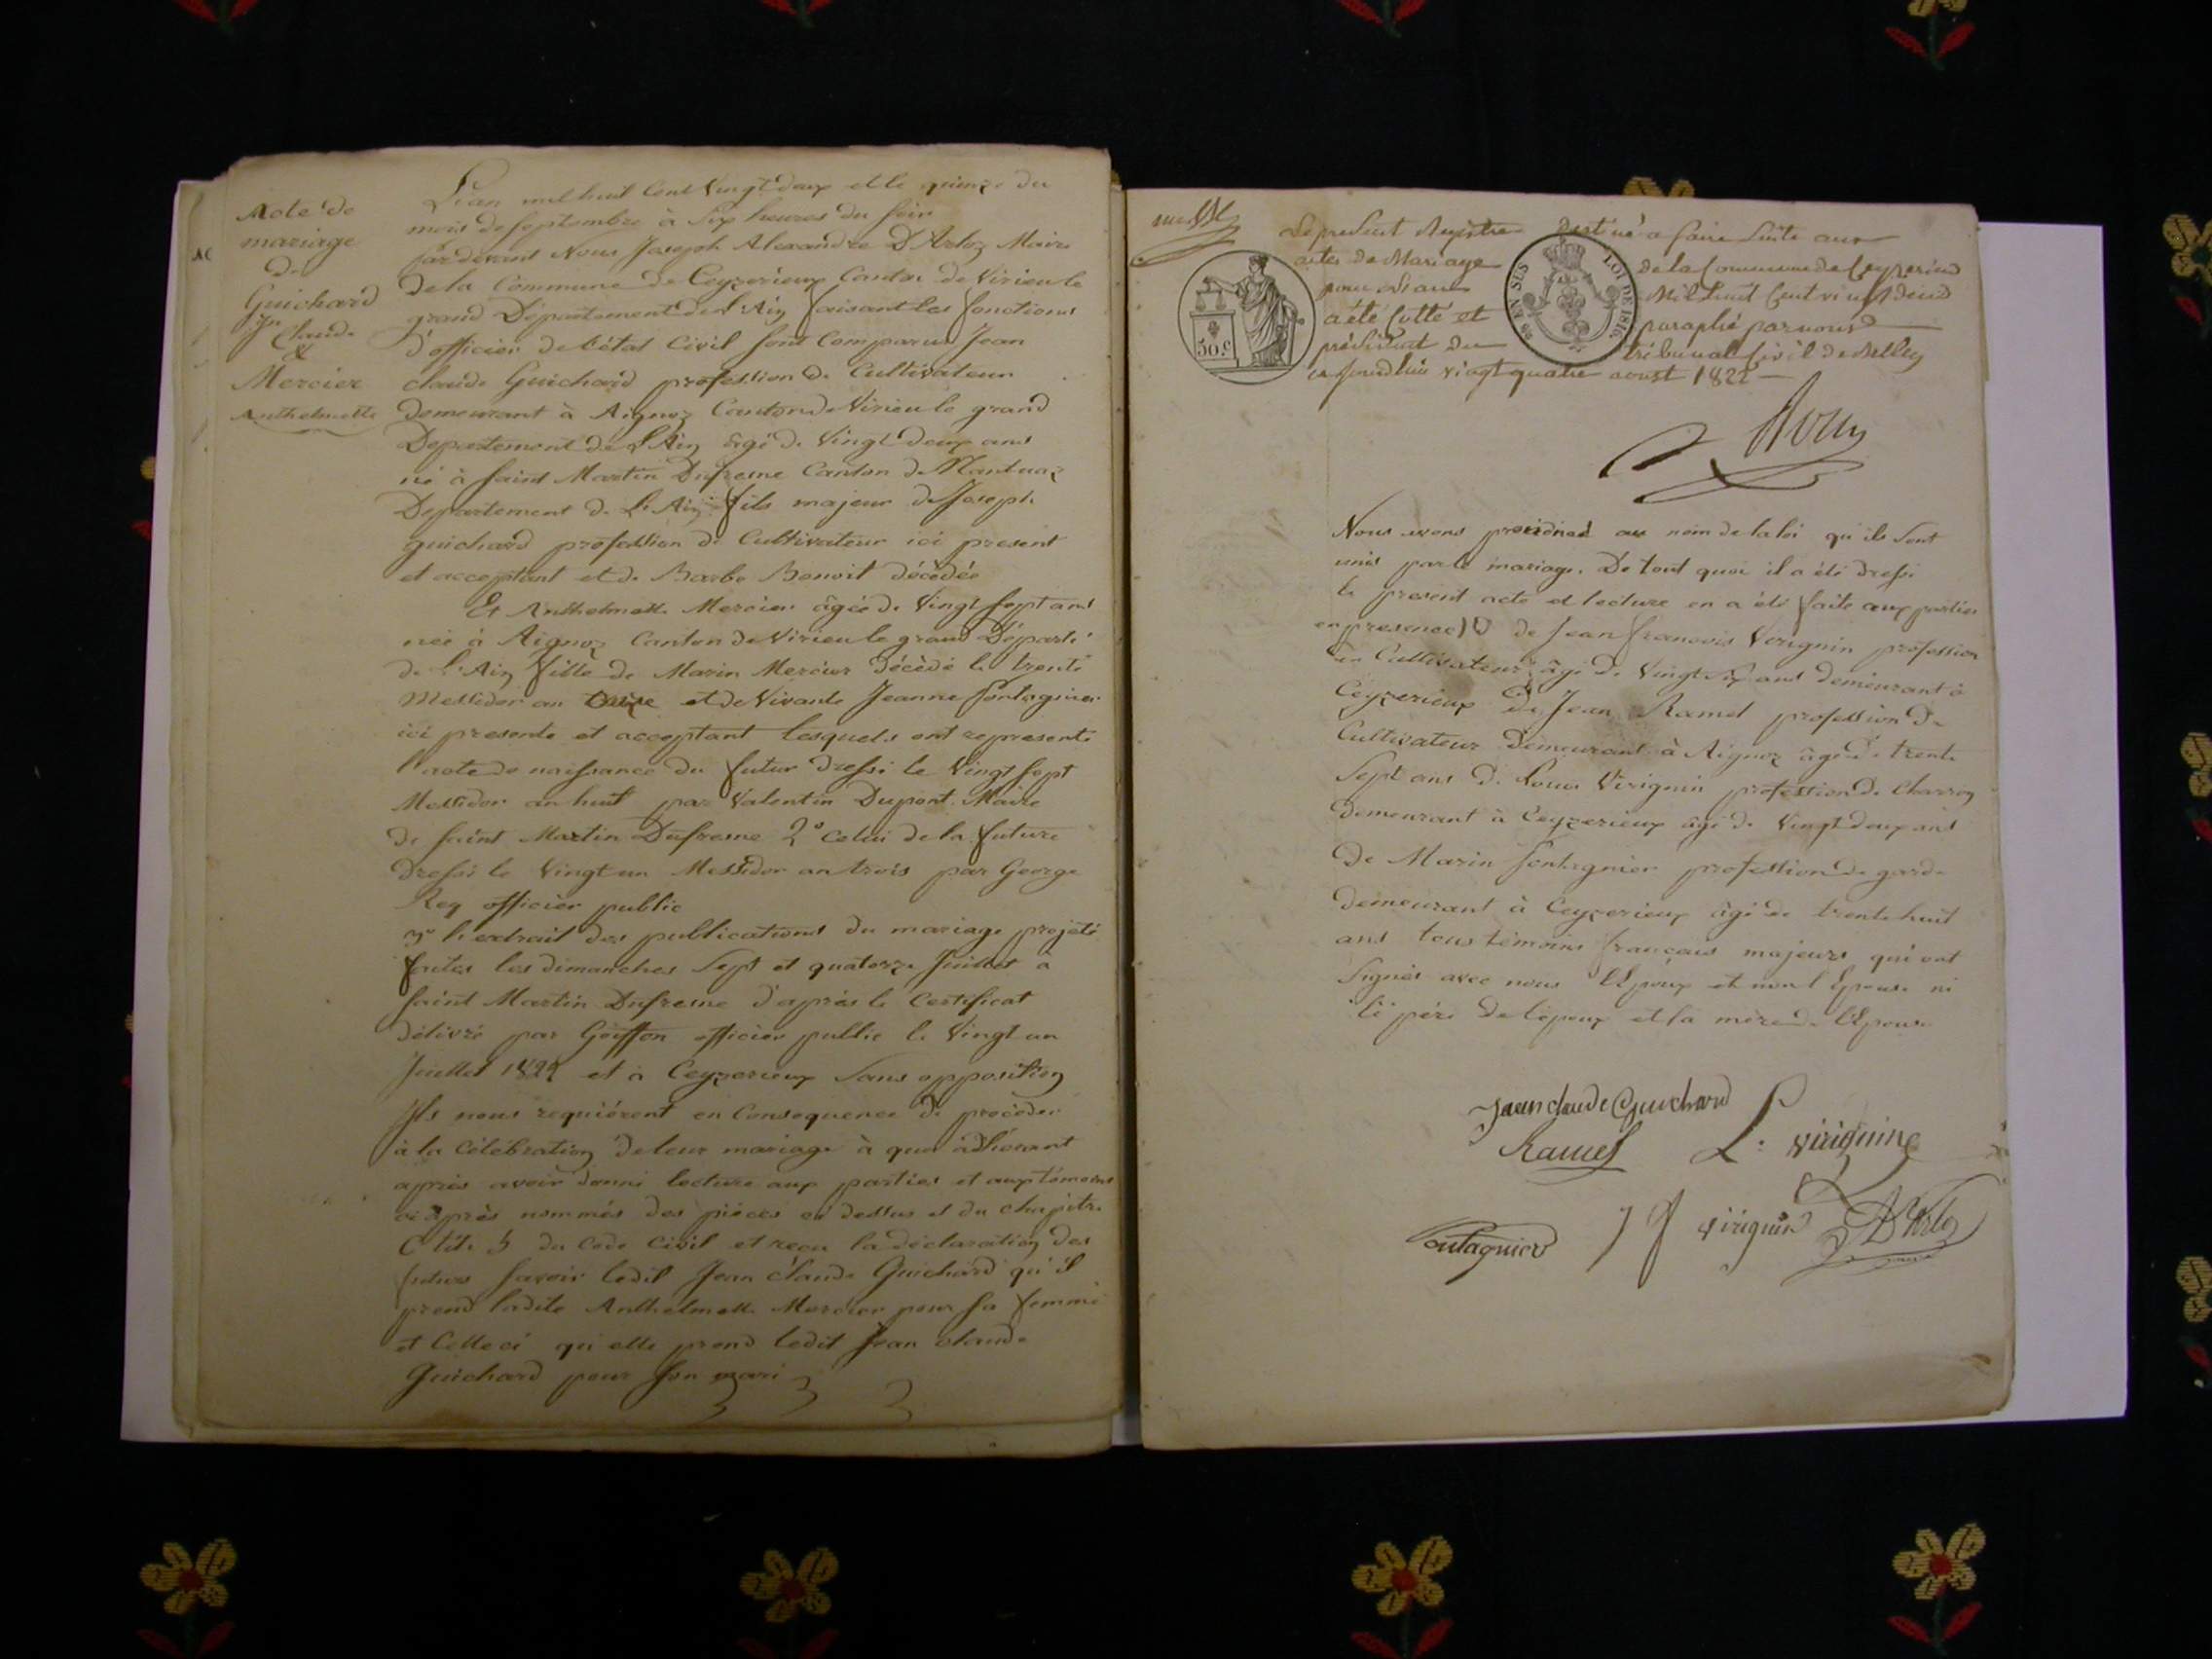 Acte de
mariage
de
Guichard
Jn
Claude
&
Mercier
Anthelmette
L'an mil huit Cent Vingt deux et le quinze du
mois de septembre à Six heures du soir
Par devant Nous Joseph Alexandre D'Arloz Maire
De la Commune de Ceyzerieux Canton de Virieu le
grand Département de l'Ain faisant les fonctions
d'officier de l'état Civil sont Comparus Jean
claude Guichard profession de Cultivateur
Demeurant à Aignoz Canton de Virieu le grand
Departement de L'Ain âgé de Vingt deux ans
né à saint Martin Dufresne Canton de Nantuaz
Departement de L'Ain fils majeur de Joseph
guichard profession de Cultivateur ici present
et acceptant et de Barbe Benoit décèdée
Et Anthelmette Mercier âgée de Vingt sept ans
née à Aignoz Canton de Virieu le grand Départt
de L'Ain fille de Marin Mercier décèdé le trente
Messidor an onze et de Vivante Jeanne fontagnier
ici presente et acceptant lesquels ont representé
l'acte de naissance du futur dressé le Vingt sept
Messidor an huit par Valentin Dupont Maire
de saint Martin Dufresne 2° celui de la future
dressé le Vingt un Messidor an trois par George
Rey officier public
3° l'extrait des publications du mariage projété
faites les dimanches Sept et quatorze Juillet à
saint Martin Dufresne d'après le Certificat
délivré par Goiffon officier public le Vingt un
Juillet 1822 et à Ceyzerieux Sans opposition
Ils nous requiérent en Consequence de procèder
à la Célébration de leur mariage à quoi adhérant
après avoir donné lecture aux parties et aux témoins
ci après nommés des pièces ci dessus et du chapitre
6 titre 5 du Code Civil et reçu la déclaration des
futurs savoir ledit Jean claude Guichard qu'il
prend ladite Anthelmette Mercier pour sa femme
et Celle ci qu'elle prend ledit Jean claude
Guichard pour son mari
Le present Registre destiné a faire suite aux
actes de Mariage de la Commune de Ceyzerieu
pour l'an Mil huit Cent vingt deux
a été Cotté et paraphé par nous
président du tribunal Civil de Belley
ce jourd'hui vingt quatre aoust 1822
50.c
EN SUS
LOI DE 1816.
Nous avons prononcé au nom de la loi qu'ils sont
unis par le mariage. De tout quoi il a été dressé
le present acte et lecture en a été faite aux parties
en presence de Jean francois Virignin profession
de Cultivateur âgé de Vingt Six ans demeurant à
Ceyzerieux De Jean Ramel profession De
Cultivateur Demeurant à Aignoz âgé de trente
Sept ans De Louis Virignin profession de Charron
demeurant à Ceyzerieux âgé de Vingt deux ans
De Marin fontagnier profession de garde
demeurant à Ceyzerieux âgé de trente huit
ans tous témoins francais majeurs qui ont
Signés avec nous L'Epoux et non L'Epouse ni
le père de l'époux et la mère de L'Epouse
Jean claude Guichard
Ramel L. virignine
fontagnier J f virignin D'Arloz